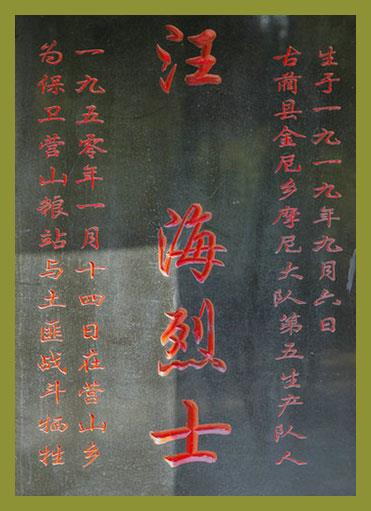 生于一九一九年九月六日
古蔺县金尼乡摩尼大队第五生产队人
汪海烈士
一九五零年一月十四日在营山乡
为保卫营山粮站与土匪战斗牺牲